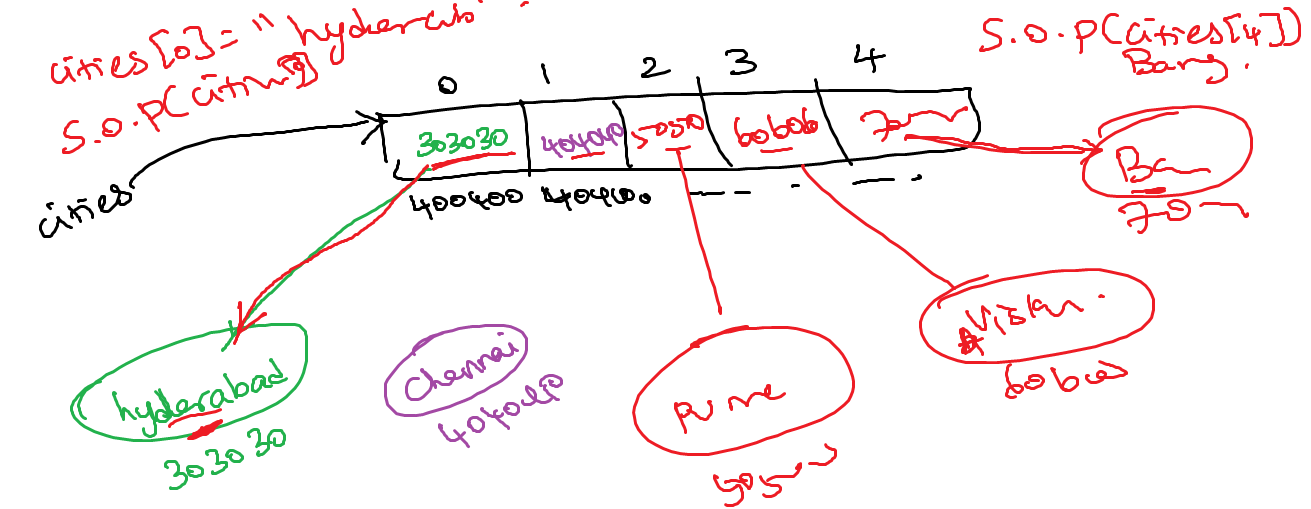 cities[0]="hyderab"
S.O.P(cities[0])
S.O.P(cities[4])
Bang.
0 1 2 3 4
303030 404040 5050 60606 70
cities
400400
Ba
70
hyderabad
303030
Chennai
404040
Pune
505